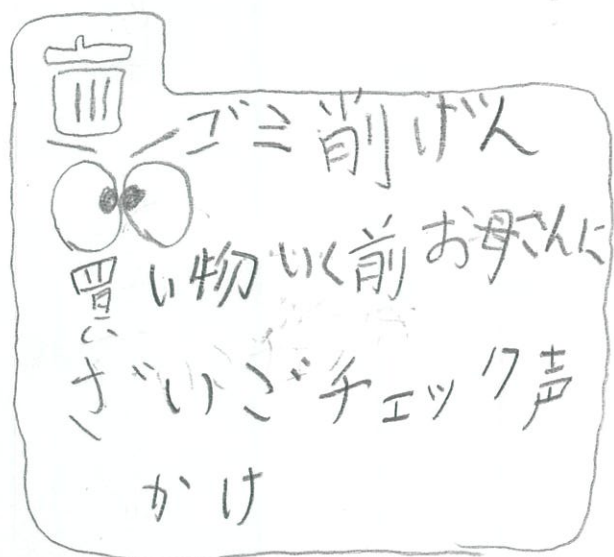 ゴミ削げん
買い物いく前お母さんに
ざいごチェック声
かけ